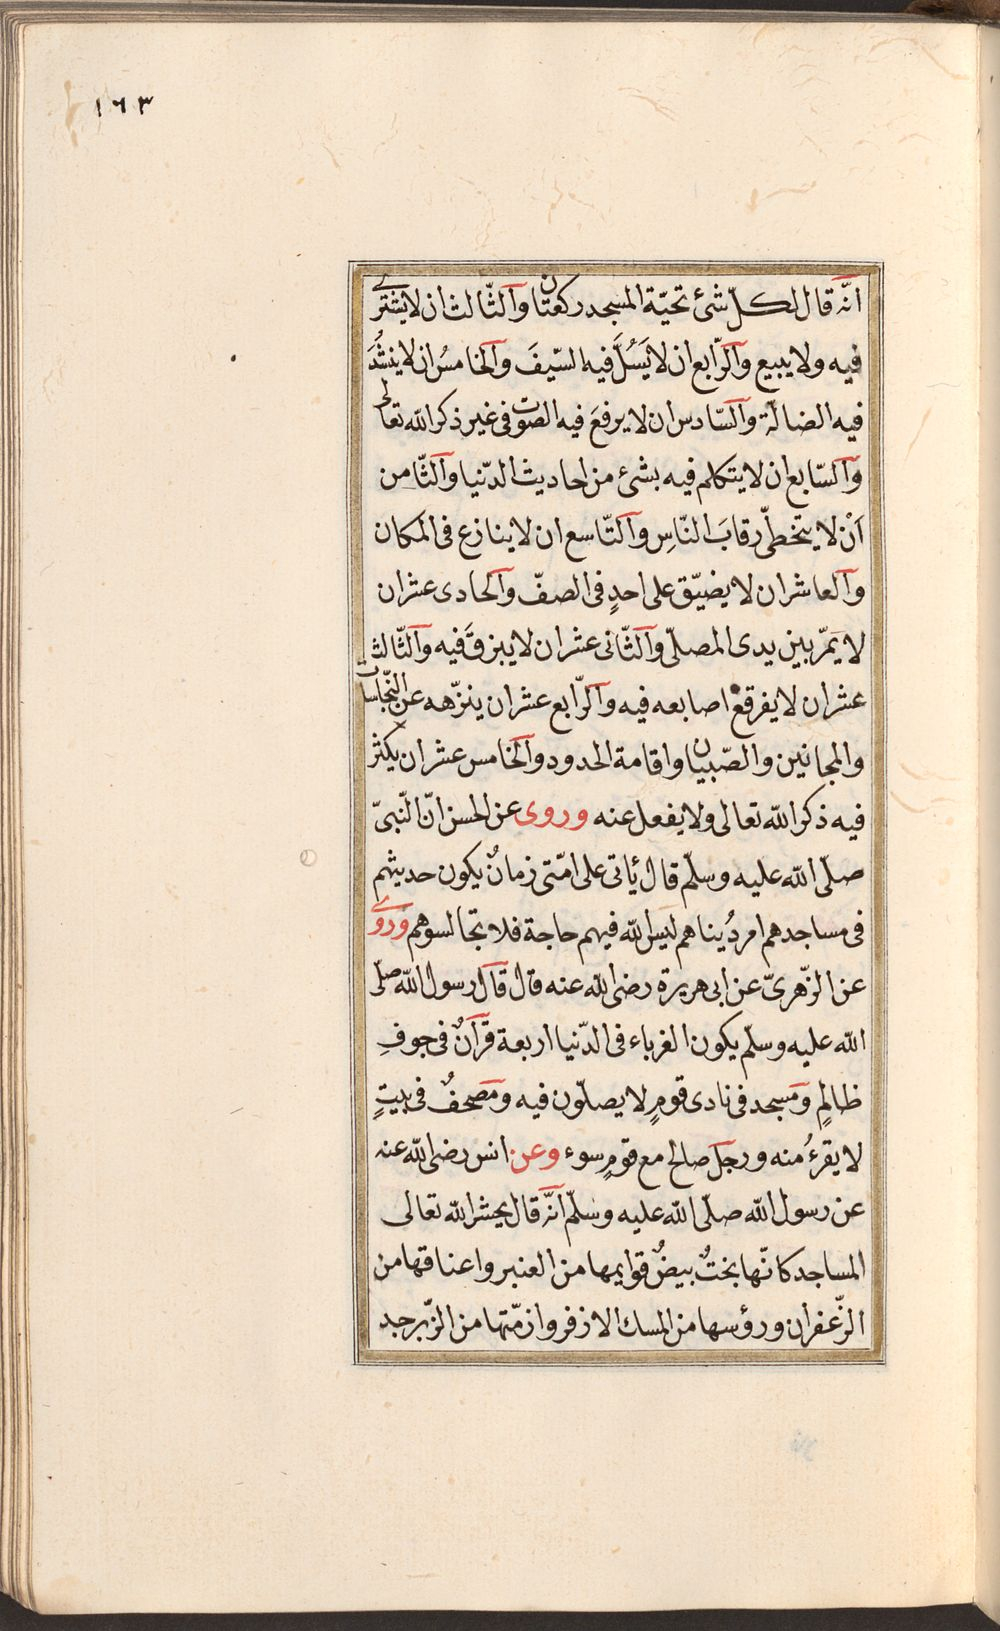 ١٦٣
انّه قال لكلّ شئ تحيّة المسجد ركعتان والثّالث ان لا يشترى
فيه ولا يبيع والرّابع ان لا يَسُلَّ فيه السّيفَ والخامسُ ان لا ينشُدَ
فيه الضالّة والسّادس ان لا يرفعَ فيه الصّوت فى غير ذكر الله تعالى
والسّابع ان لا يتكلم فيه بشئ من احاديث الدّنيا والثّامن
اَنْ لا يتخطّى رقابَ النّاسِ والتّاسع ان لا ينازع فى المكان
والعاشر ان لا يضيّق على احدٍ فى الصفّ والحادى عشر ان
لا يمرّ بين يدى المصلّى والثّانى عشر ان لا يبزقَ فيه والثّالث
عشر ان لا يفرقع اصابعه فيه والرّابع عشر ان ينزّهه عن النّجاسات
والمجانين والصّبيان واقامة الحدود والخامس عشر ان يكثر
فيه ذكر الله تعالى ولا يفعل عنه وروى عن الحسن انّ النّبىّ
صلّى الله عليه وسلّم قال يأتى على امّتى زمانٌ يكون حديثهم
فى مساجدهم امر دُيناهم ليس لله فيهم حاجة فلا تجالسوهم وروى
عن الزّهرىّ عن ابى هريرة رضى الله عنه قال قال رسول الله صلّى
الله عليه وسلّم يكون الغرباء فى الدّنيا اربعة قرآنٌ فى جوفِ
ظالمٍ ومسجد فى نادى قومٍ لا يصلّون فيه ومصحفٌ فى بيتٍ
لا يقرءُ منه ورجل صالح مع قومٍ سوء وعن انس رضى الله عنه
عن رسول الله صلّى الله عليه وسلّم انّه قال يحشر الله تعالى
المساجد كانّها بختٌ بيضٌ قوايمها من العنبر واعناقها من
الزّعفران ورؤسها من المسك الاذفر وازمّتها من الزّبرجد